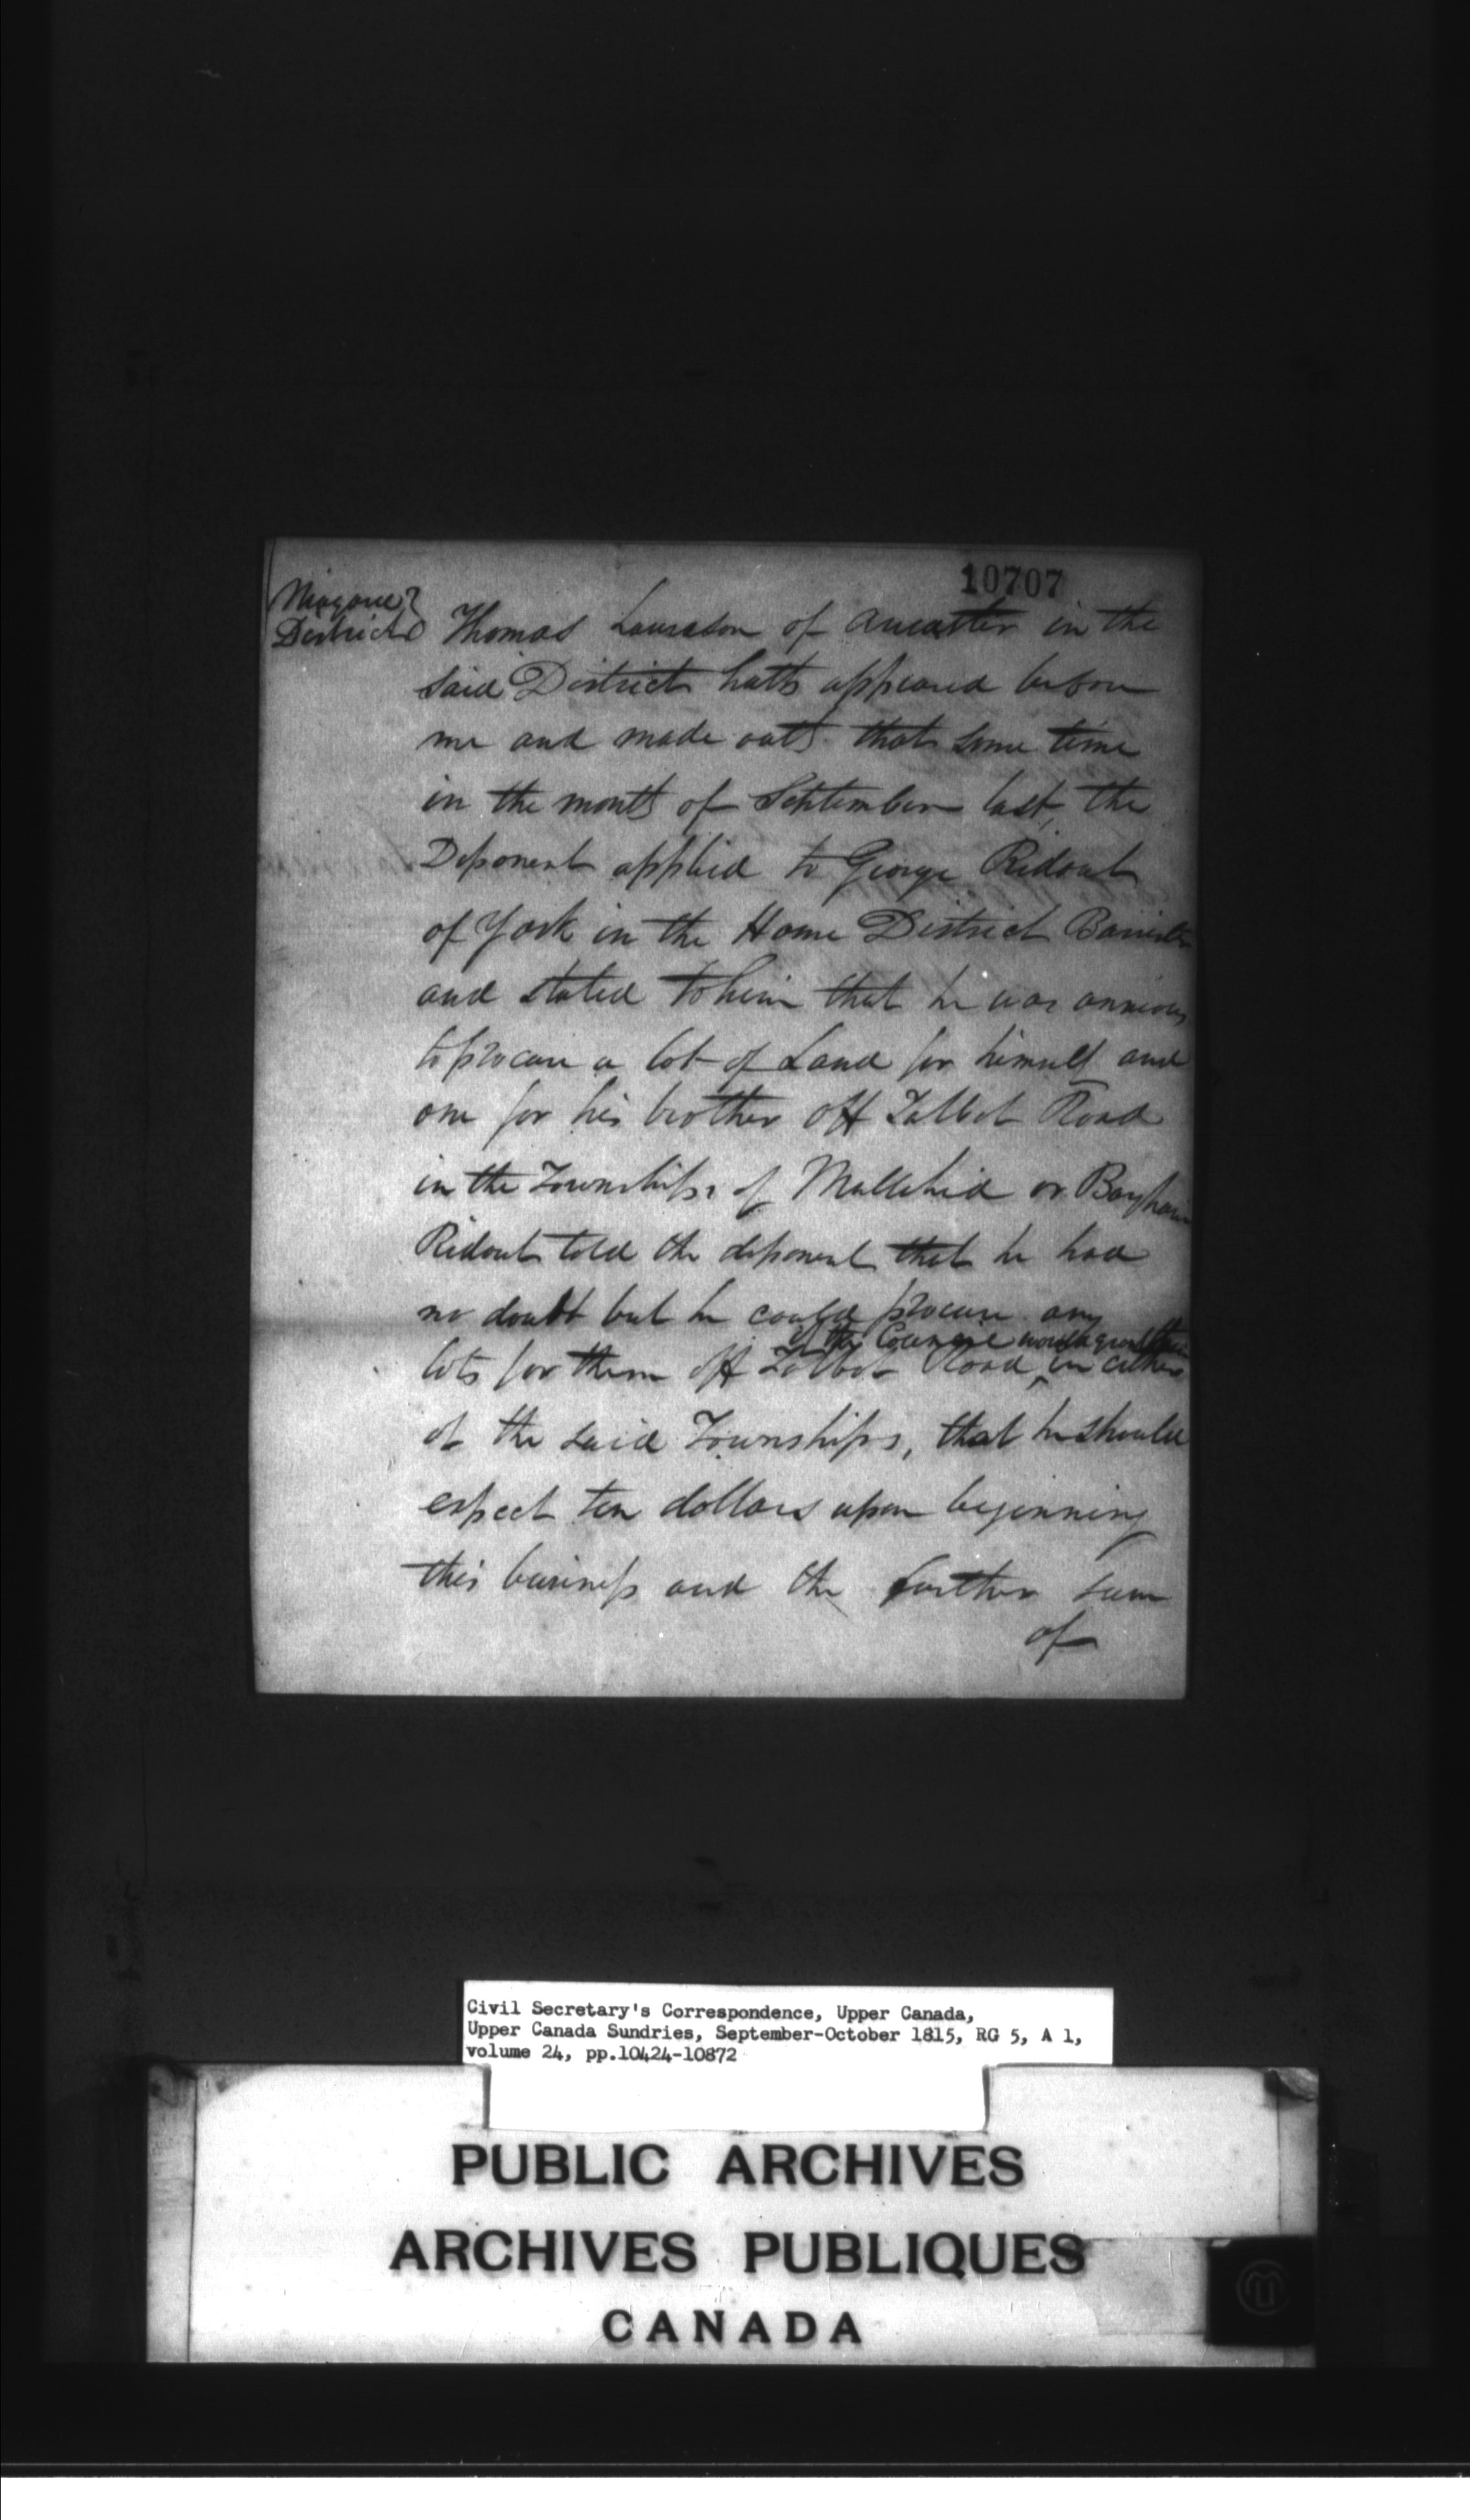 10707
Niagara
District Thomas Lawrason of Ancaster in the
said District hath appeared before
me and made oath that some time
in the month of September last, the
Deponent applied to George Ridout
of York in the Home District Barrister
and stated to him that he was anxious
to procure a lot of Land for himself and
one for his brother off Talbot Road
in the Townships of Mallehid or Bayham
Ridout told the deponent that he had
no doubt but he could procure any
if the Council would grant them
lots for them off Talbot Road ^ in either
of the said Townships, that he should
expect ten dollars upon beginning
this business and the further sum
of
Civil Secretary's Correspondence, Upper Canada,
Upper Canada Sundries, September-October 1815, RG 5, A 1,
volume 24, pp.10424-10872
PUBLIC ARCHIVES
ARCHIVES PUBLIQUES
CANADA